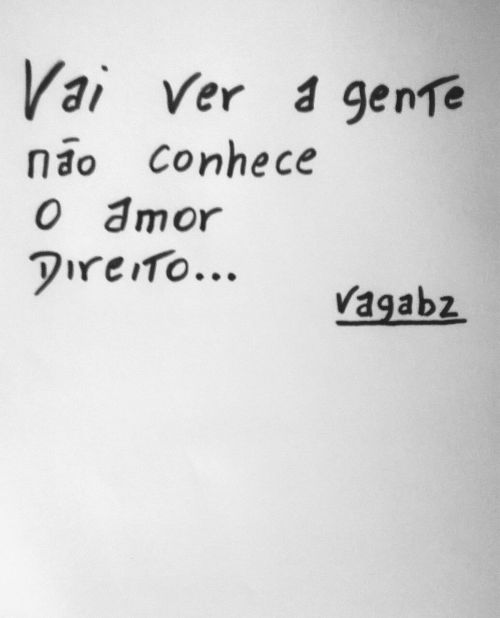 Vai ver a gente
não conhece
o amor
Direito...
vagabz